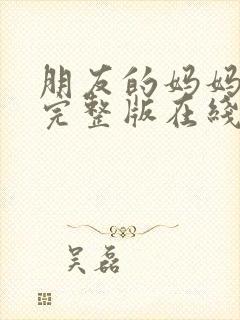 朋友的妈妈
完整版在线
吴磊